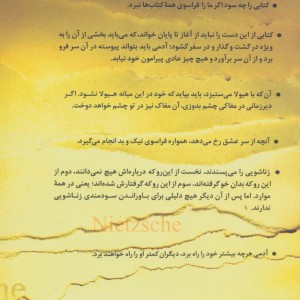 • کتابی را چه سود اگر ما را فراسوی همهٔ کتاب‌ها نبرد.
• کتابی از این دست را نباید از آغاز تا پایان خواند، که می‌باید بخشی از آن را به
ویژه در گشت و گذار و در سفر گشود؛ آدمی باید بتواند پیوسته در آن سر فرو
برد و از آن سر برآورد و هیچ چیز عادی پیرامون خود نیابد.
• آن‌که با هیولا می‌ستیزد، باید بپاید که خود در این میانه هیولا نشود. اگر
دیرزمانی در مغاکی چشم بدوزی، آن مغاک نیز در تو چشم خواهد دوخت.
• آنچه از سر عشق رخ می‌دهد، همواره فراسوی نیک و بد انجام می‌گیرد.
• زناشویی را می‌پسندند، نخست از این‌رو که درباره‌اش هیچ نمی‌دانند، دوم از
این رو که بدان خو گرفته‌اند، سوم از این رو که گرفتارش شده‌اند؛ یعنی در همهٔ
موارد. اما پس از آن دیگر هیچ دلیلی برای باوراندن سودمندی زناشویی
ندارند. ۱
Nietzsche
• آدمی هرچه بیشتر خود را راه برد، دیگران کمتر او را راه خواهند برد.